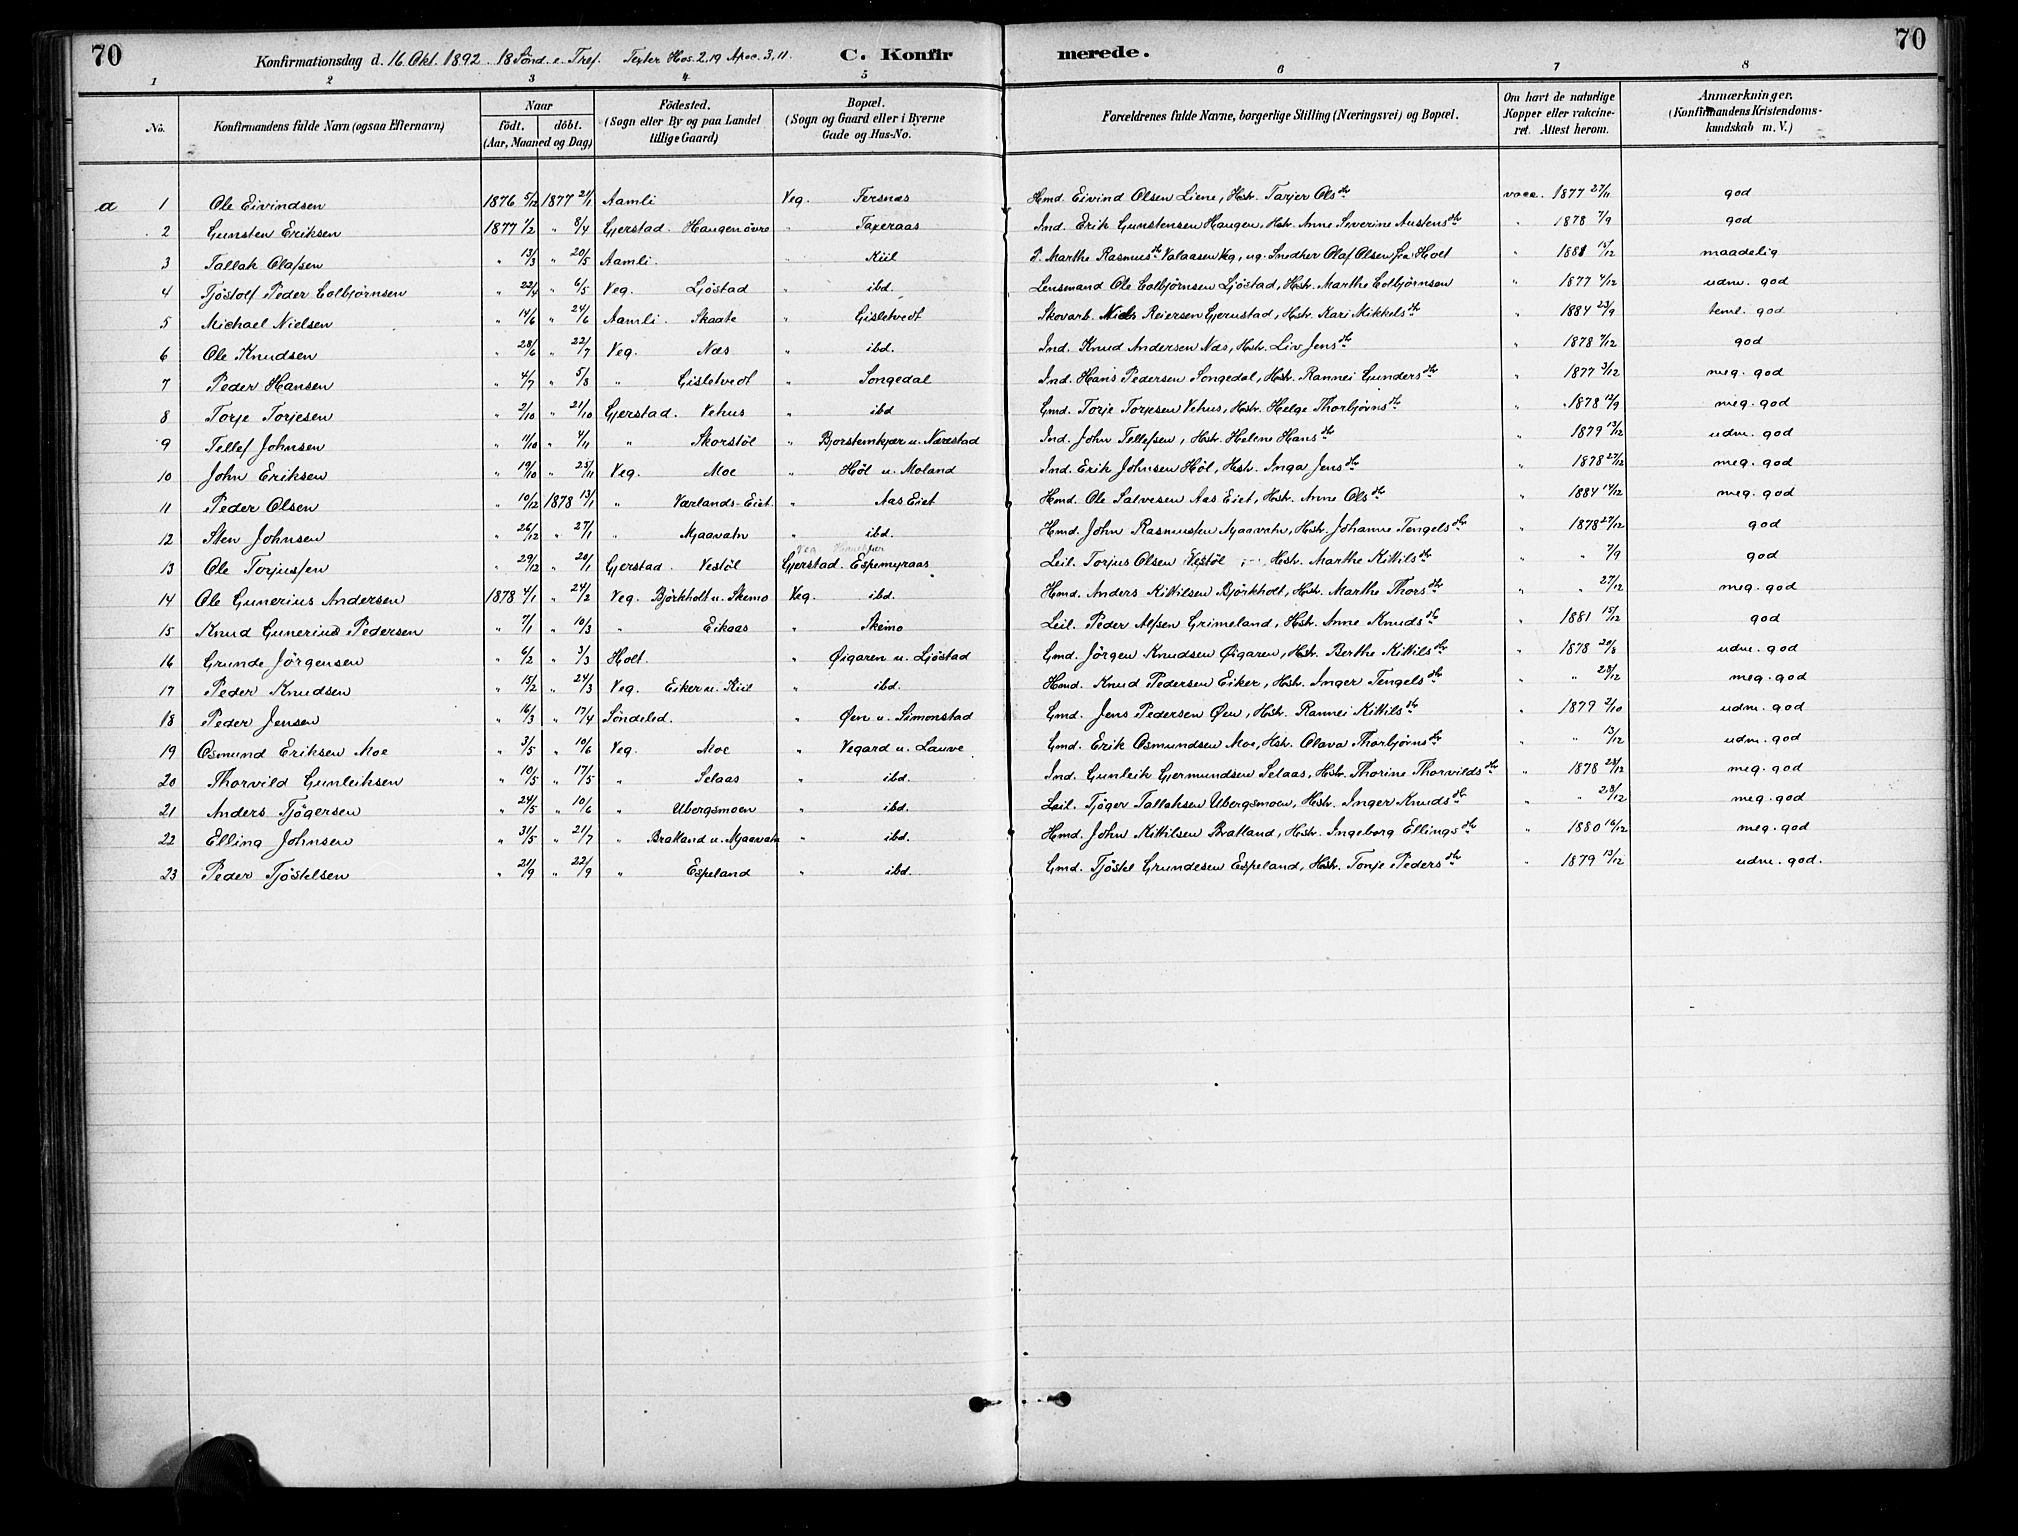 70 Konfirmationsdag d. 16 Okt. 1892. 18 Sönd. e. Tref. Texter Hos. 2,19 Apoc. 3,11. C. Konfirmerede. 70
1 2 3 4 5 6 7 8
No. Konfirmandens fulde Navn (ogsaa Efternavn) Naar födt. döbt. (Aar, Maaned og Dag) Födested. (Sogn eller By og paa Landet tillige Gaard) Bopæl. (Sogn og Gaard eller i Byerne Gade og Hus-No. Forældrenes fulde Navne, borgerlige Stilling (Næringsvei) og Bopæl. Om havt de naturlige Kopper eller vakcineret. Attest herom. Anmærkninger. (Konfirmandens Kristendomskundskab m. V.)
a 1 Ole Eivindsen 1876 5/12 1877 21/1 Aamli Veg. Tersnæs Hmd. Eivind Olsen Liene, Hstr. Tarjer Olsdtr vacc. 1877 27/11 god
2 Gunsten Eriksen 1877 1/2 " 8/4 Gjerstad. Haugen övre " Taxeraas Ind. Erik Gunstensen Haugen, Hstr. Anne Severine Austensdtr " 1878 7/9 god
3 Tallak Olafsen " 13/3 " 20/5 Aamli. " Kiil P. Marthe Rasmusdtr Valaasen Veg, ug. Indher Olaf Olsen fra Holt " 1881 15/12 maadelig
4 Tjöstolf Peder Colbjörnsen " 22/4 " 6/5 Veg. Ljöstad " ibd. Lensmand Ole Colbjörnsen Ljöstad, Hstr. Marthe Colbjörnsen " 1877 4/12 udm. god
5 Michael Nielsen " 14/6 " 24/6 Aamli. Skaate " Gisletvedt Skovarb. Niels Reiersen Gjerustad, Hstr. Kari Mikkelsdtr " 1884 23/9 teml. god
6 Ole Knudsen " 28/6 " 22/7 Veg. Næs " ibd. Ind. Knud Andersen Næs, Hstr. Liv Jensdtr " 1878 7/12 god
7 Peder Hansen " 4/7 " 5/8 " Gisletvedt " Songedal Ind. Hans Pedersen Songedal, Hstr. Rannei Gundersdtr " 1877 3/12 meg. god
8 Torje Torjesen " 2/10 " 21/10 Gjerstad. Vehus " ibd Gmd. Torje Torjesen Vehus, Hstr. Helge Thorbjörnsdtr " 1878 12/9 meg. god
9 Tellef Johnsen " 11/10 " 4/11 " Skorstöl " Bjorstemkjær u. Nærestad Ind. John Tellefsen, Hstr. Helene Hansdtr " 1879 13/12 udm. god
10 John Eriksen " 19/10 " 25/11 Veg. Moe " Höl u. Moland Ind. Erik Johnsen Höl, Hstr. Inga Jensdtr " 1878 27/12 meg. god
11 Peder Olsen " 10/12 1878 13/1 " Værlands-Eiet. " Aas Eiet Hmd. Ole Salvesen Aas Eiet, Hstr. Anne Olsdtr " 1884 14/12 meg. god
12 Sten Johnsen " 26/12 " 27/1 " Mjaavatn " ibd. Hmd. John Rasmussen Mjaavatn, Hstr. Johanne Tengelsdtr " 1878 27/12 god
13 Ole Torjussen " 29/12 " 20/1 Gjerstad. Vestöl Gjerstad. Espemyraas Leil. Torjus Olsen Vestöl Hstr. Marthe Kittilsdtr " " 7/9 god
14 Ole Gunerius Andersen 1878 4/1 " 24/2 Veg. Björkholt u. Skemo Veg. ibd. Hmd. Anders Kittilsen Björkholt, Hstr. Marthe Thorsdtr " " 27/12 meg. god
15 Knud Gunerius Pedersen " 7/1 " 10/3 " Eikaas " Skeimo Leil. Peder Alfsen Grimeland, Hstr. Anne Knudsdtr " 1881 15/12 god
16 Grunde Jörgensen " 6/2 " 3/3 Holt. " Øigaren u. Ljöstad Gmd. Jörgen Knudsen Øigaren, Hstr. Berthe Kittilsdtr " 1878 24/8 udm. god
17 Peder Knudsen " 15/2 " 24/3 Veg. Eiker u. Kiil " ibd. Hmd. Knud Pedersen Eiker, Hstr. Inger Tengelsdtr " " 28/12 meg. god
18 Peder Jensen " 16/3 " 17/4 Söndeled. " Øen u. Simonstad Gmd. Jens Pedersen Øen, Hstr. Rannei Kittilsdtr " 1879 2/10 udm. god
19 Osmund Eriksen Moe " 3/5 " 10/6 Veg. Moe " Vegard u. Lauve Gmd. Erik Osmundsen Moe, Hstr. Olava Thorbjörnsdtr " " 13/12 udm. god
20 Thorvild Gunleiksen " 10/5 " 17/5 " Selaas " ibd. Ind. Gunleik Gjermundsen Selaas, Hstr. Thorine Thorvildsdtr " 1878 28/12 meg. god
21 Anders Tjögersen " 24/5 " 10/6 " Ubergsmoen " ibd. Leil. Tjöger Tallaksen Ubergsmoen, Hstr. Inger Knudsdtr " " 28/12 meg. god
22 Elling Johnsen " 31/5 " 21/7 " Brakland u. Mjaavatn " ibd. Hmd. John Kittilsen Bratland, Hstr. Ingeborg Ellingsdtr " 1880 16/12 meg. god
23 Peder Tjöstelsen " 21/9 " 22/9 " Espeland " ibd. Gmd. Tjöstel Grundesen Espeland, Hstr. Tonje Pedersdtr " 1879 13/12 udm. god.